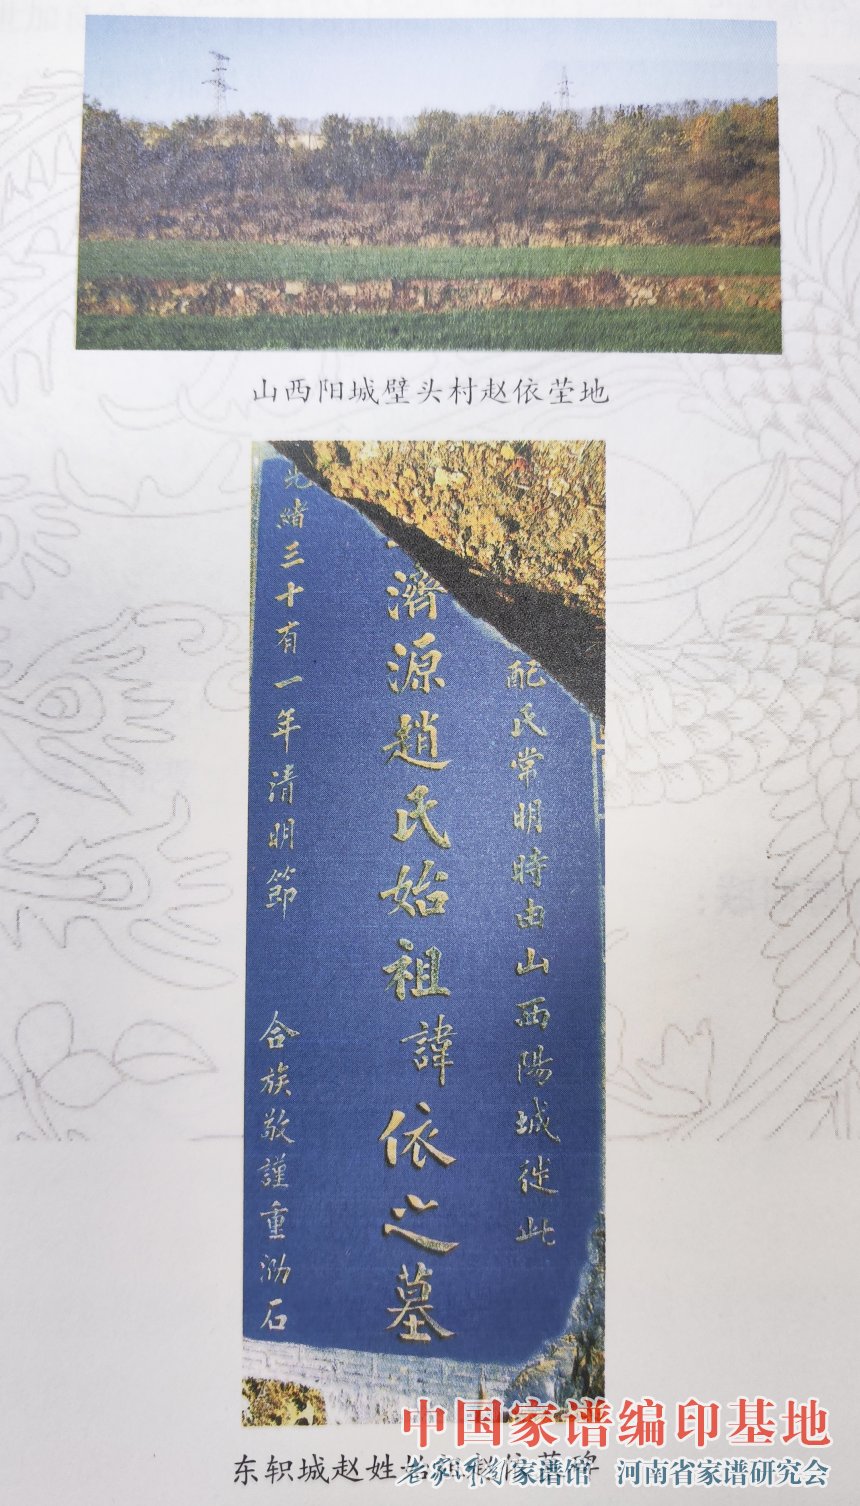 山西阳城壁头村赵依茔地
配氏常明時由山西陽城徙此
濟源趙氏始祖諱依之墓
光緒三十有一年清明節 合族敬謹重泐石
中国家谱编印基地
东轵城赵姓始祖
家谱馆 河南省家谱研究会